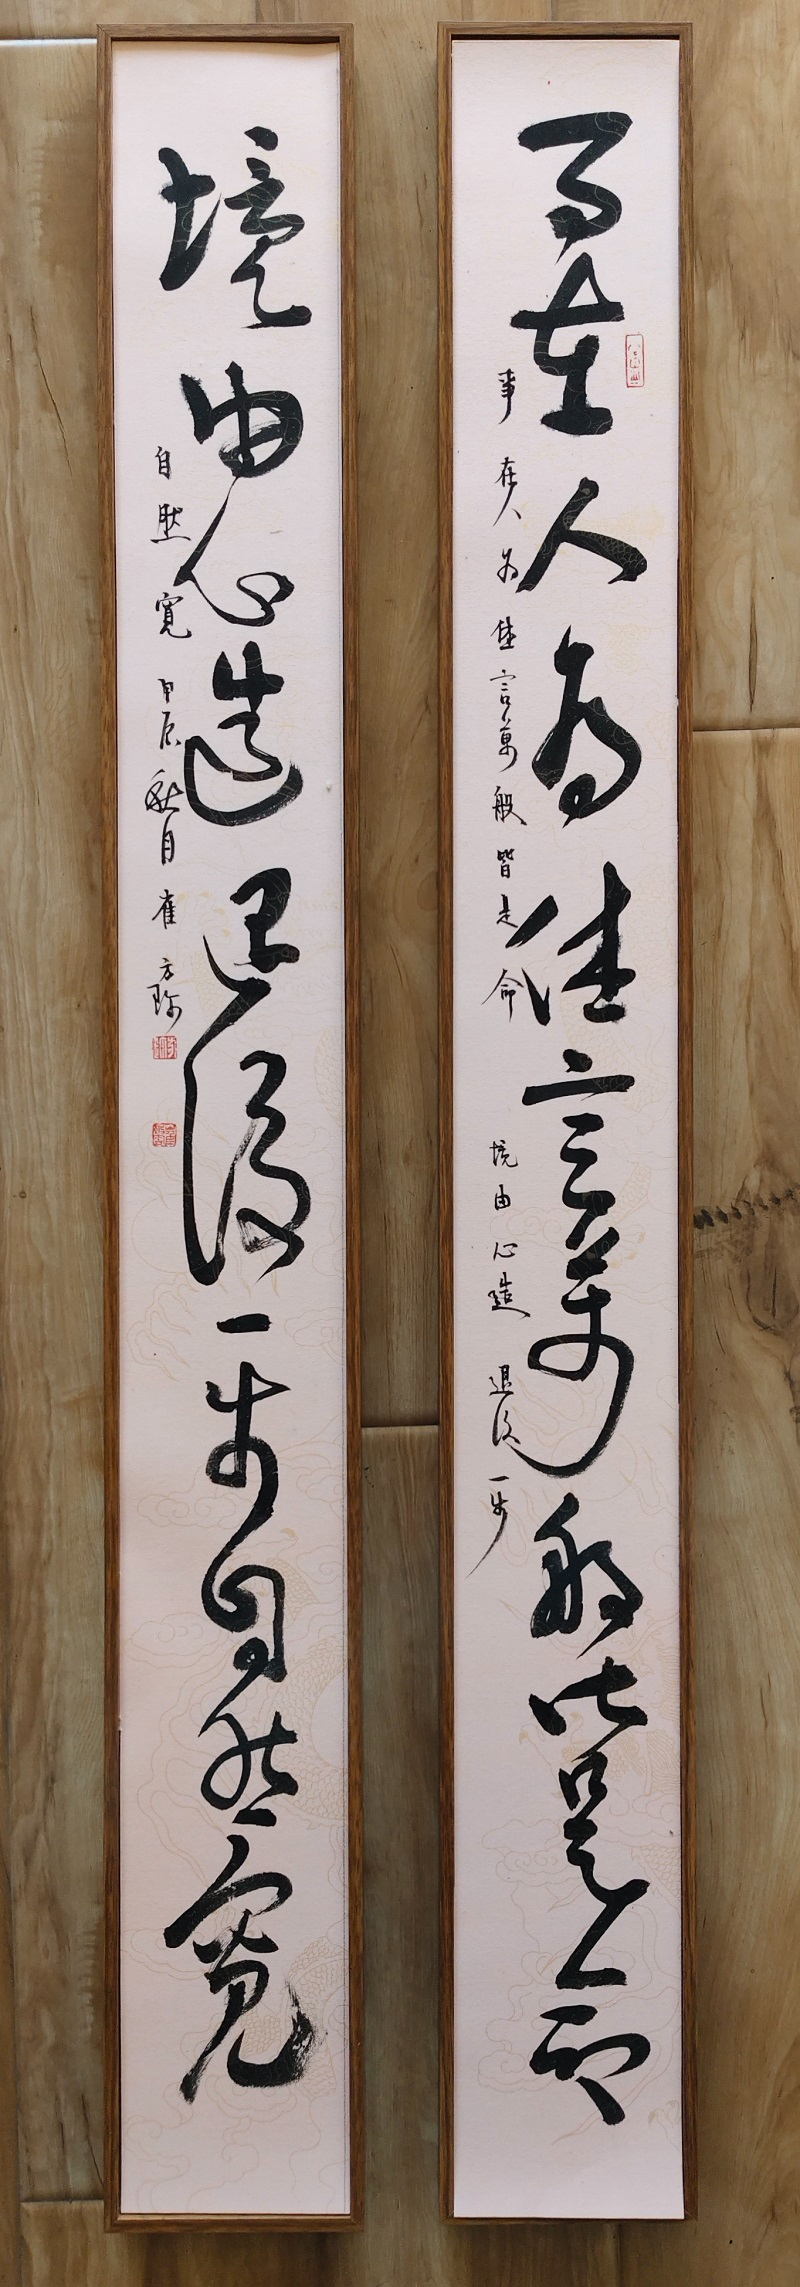 事在人為休言萬般皆是命
事在人為休言萬般皆是命
境由心造退後一步
境由心造退後一步自然寬
自然寬
甲辰秋月崔方